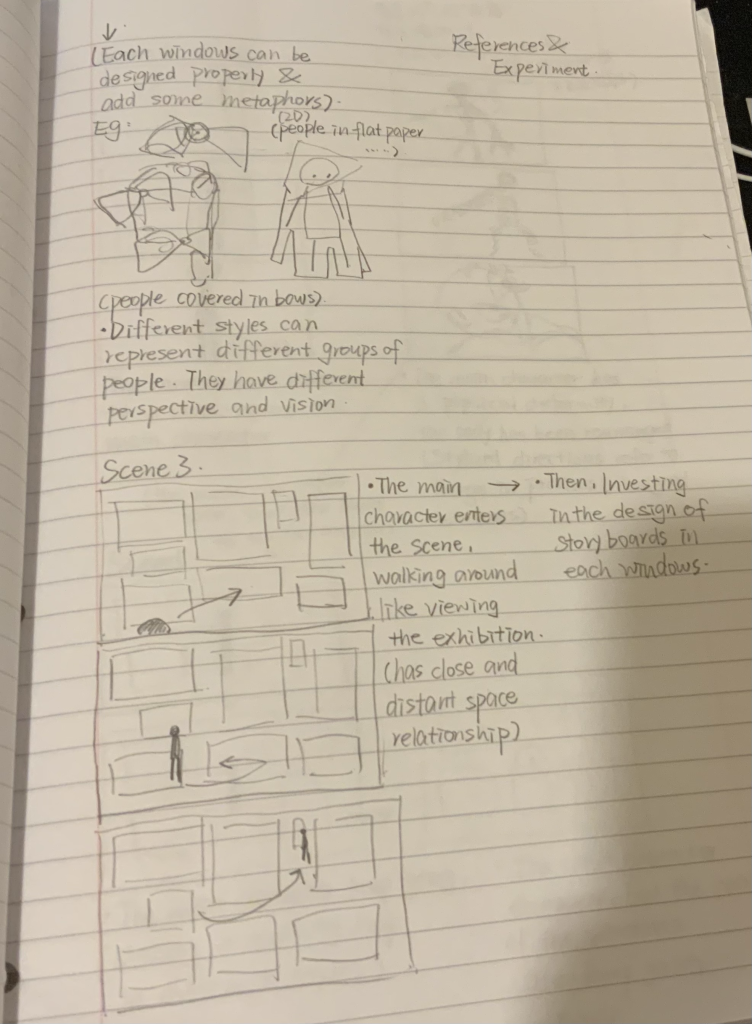 (Each windows can be
designed properly &
add some metaphors).
Eg:
(2D)
(people in flat paper
.....)
References &
Experiment.
(people covered in bows).
• Different styles can
represent different groups of
people. They have different
perspective and vision.
Scene 3.
• The main
character enters
the scene,
walking around
like viewing
the exhibition.
(has close and
distant space
relationship)
→ • Then, Investing
in the design of
storyboards in
each windows.